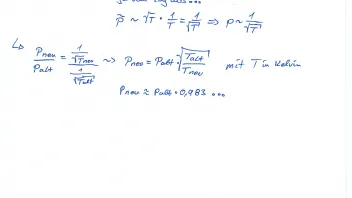 p̃ ~ √T · 1/T = 1/√T ⇒ p ~ 1/√T
↳ Pneu/Palt = (1/√Tneu)/(1/√Talt) ⇝ Pneu = Palt · √(Talt/Tneu) mit T in Kelvin
Pneu ≈ Palt · 0,983 ...